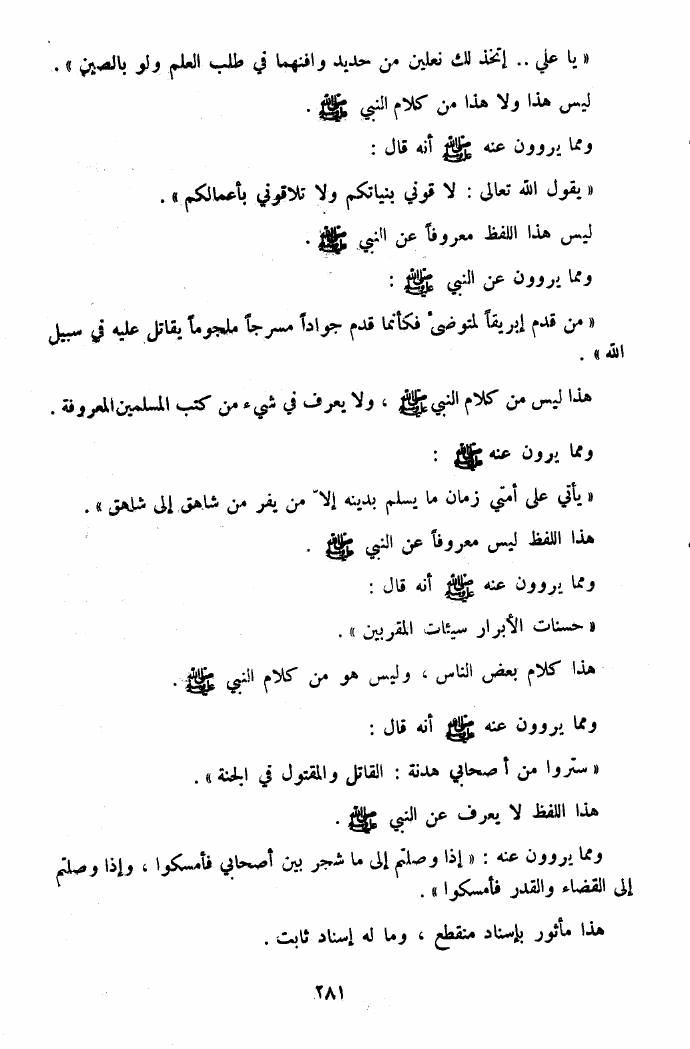 « يا علي .. إتخذ لك نعلين من حديد وافنهما في طلب العلم ولو بالصين » .
ليس هذا ولا هذا من كلام النبي ﷺ .
ومما يروون عنه ﷺ أنه قال :
« يقول الله تعالى : لا قوني بنياتكم ولا تلاقوني بأعمالكم » .
ليس هذا اللفظ معروفاً عن النبي ﷺ .
ومما يروون عن النبي ﷺ :
« من قدم إبريقاً لمتوضىء فكأنما قدم جواداً مسرجاً ملجوماً يقاتل عليه في سبيل
الله » .
هذا ليس من كلام النبي ﷺ ، ولا يعرف في شيء من كتب المسلمين المعروفة .
ومما يرون عنه ﷺ :
« يأتي على أمتي زمان ما يسلم بدينه إلاّ من يفر من شاهق إلى شاهق » .
هذا اللفظ ليس معروفاً عن النبي ﷺ .
ومما يروون عنه ﷺ أنه قال :
« حسنات الأبرار سيئات المقربين » .
هذا كلام بعض الناس ، وليس هو من كلام النبي ﷺ .
ومما يروون عنه ﷺ أنه قال :
« ستروا من أصحابي هدنة : القاتل والمقتول في الجنة » .
هذا اللفظ لا يعرف عن النبي ﷺ .
ومما يروون عنه : « إذا وصلتم إلى ما شجر بين أصحابي فأمسكوا ، وإذا وصلتم
إلى القضاء والقدر فأمسكوا » .
هذا مأثور بإسناد منقطع ، وما له إسناد ثابت .
٢٨١